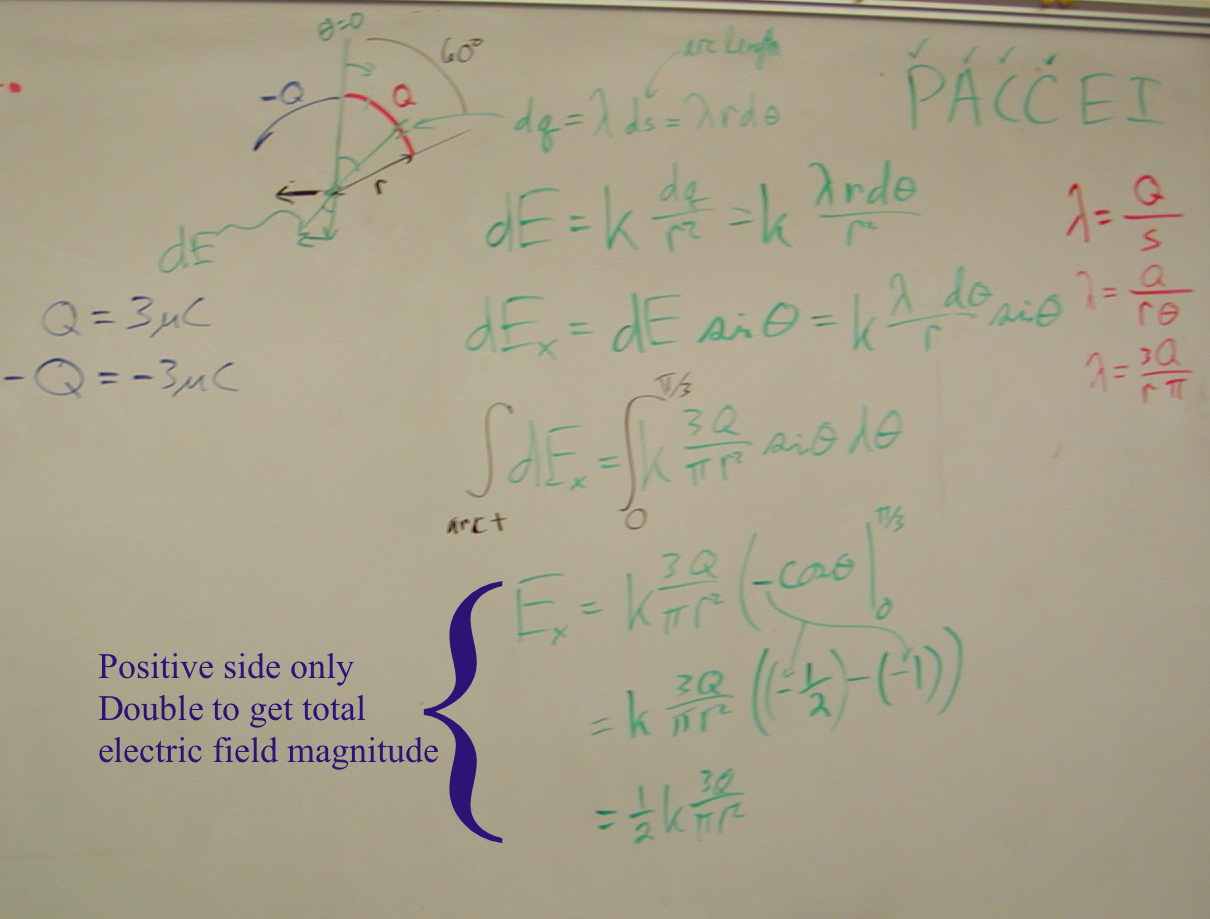 θ=0
60°
arc length
-Q
Q
dq = λ ds = λ r dθ
P A C C E I
r
dE
dE = k dq/r² = k λ r dθ/r²
λ = Q/s
Q = 3μC
-Q = -3μC
dEₓ = dE sin θ = k λ dθ/r sin θ
λ = Q/rθ
λ = 3Q/rπ
∫ arc+ dEₓ = ∫₀^π/3 k 3Q/πr² sin θ dθ
Eₓ = k 3Q/πr² (-cos θ |₀^π/3
= k 3Q/πr² ((-1/2) - (-1))
= 1/2 k 3Q/πr²
Positive side only
Double to get total
electric field magnitude